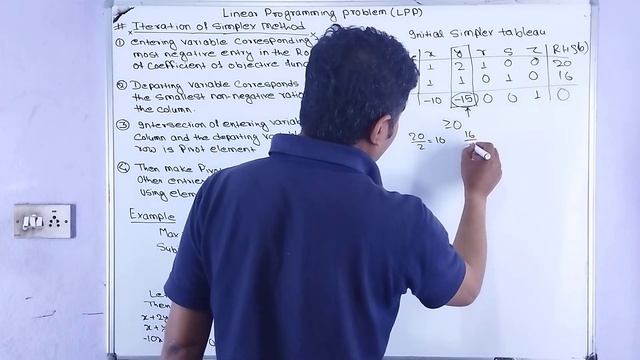 Linear Programming problem (LPP)
# Iteration of Simplex Method
① entering variable Corresponding
most negative entry in the Ro
of Coefficient of objective func
② Departing variable Corresponds
the Smallest non-negative ratio
the column.
③ Intersection of entering varia
Column and the departing vari
row is Pivot element
④ Then make Pivo
Other entries
using elem
Example
Max
Sub
Le
Then
x+2y
x+y
-10x
Initial Simplex tableau
x y r S Z RHS(b)
1 2 1 0 0 20
1 1 0 1 0 16
-10 -15 0 0 1 0
↑
≥0
20/2 = 10 16/